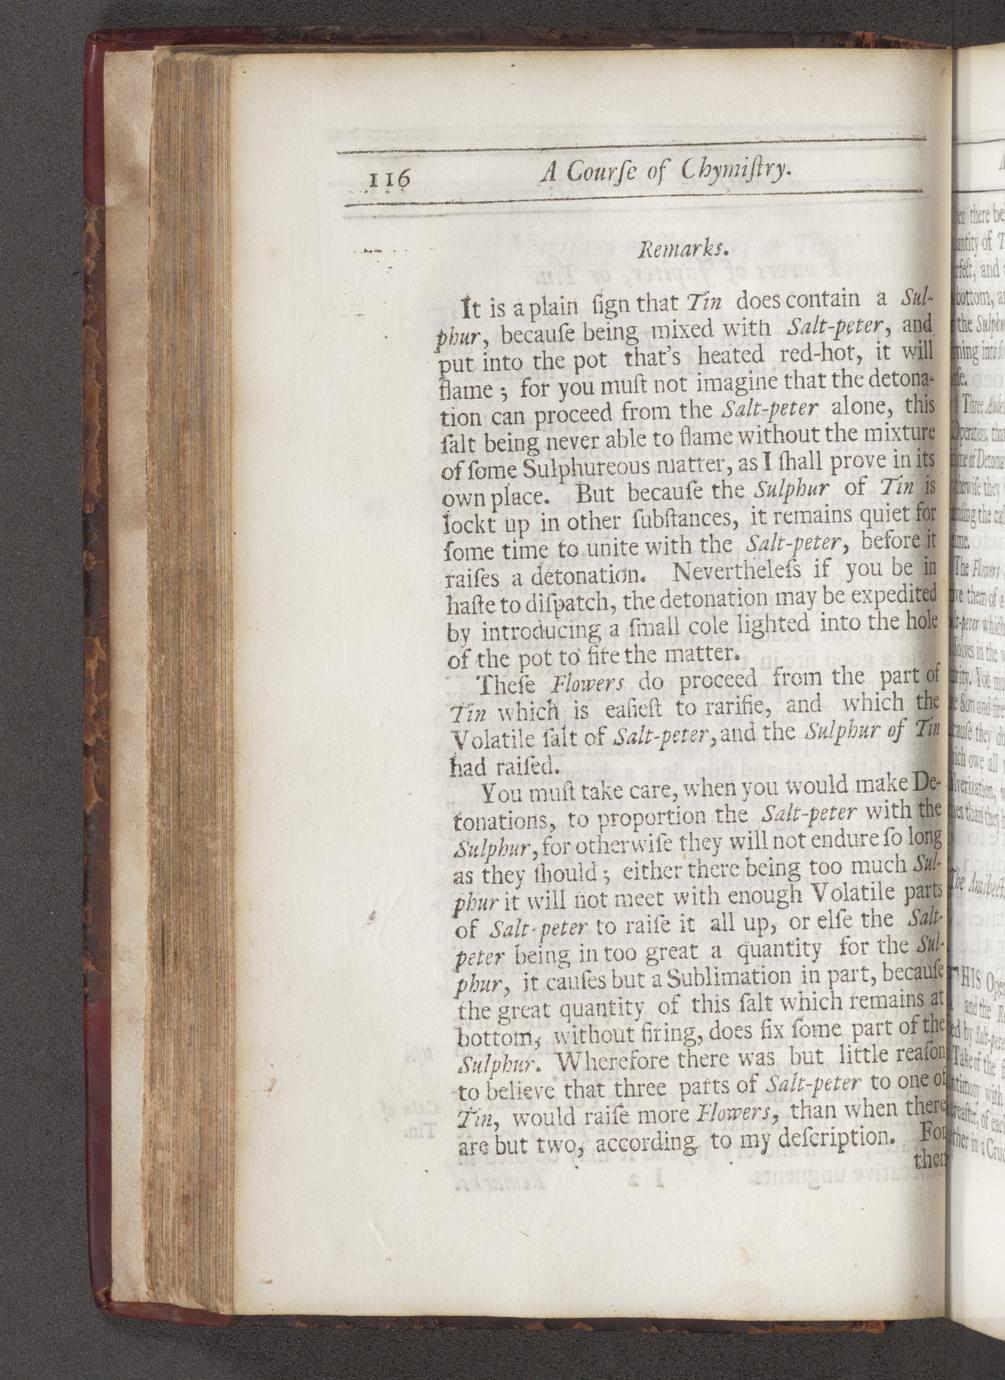 116 A Courſe of Chymiſtry.
Remarks.
It is a plain ſign that Tin does contain a Sul-
phur, becauſe being mixed with Salt-peter, and
put into the pot that's heated red-hot, it will
flame; for you muſt not imagine that the detona-
tion can proceed from the Salt-peter alone, this
ſalt being never able to flame without the mixture
of ſome Sulphureous matter, as I ſhall prove in its
own place. But becauſe the Sulphur of Tin is
lockt up in other ſubſtances, it remains quiet for
ſome time to unite with the Salt-peter, before it
raiſes a detonation. Nevertheleſs if you be in
haſte to diſpatch, the detonation may be expedited
by introducing a ſmall cole lighted into the hole
of the pot to fire the matter.
Theſe Flowers do proceed from the part of
Tin which is eaſieſt to rarifie, and which the
Volatile ſalt of Salt-peter, and the Sulphur of Tin
had raiſed.
You muſt take care, when you would make De-
tonations, to proportion the Salt-peter with the
Sulphur, for otherwiſe they will not endure ſo long
as they ſhould; either there being too much Sul-
phur it will not meet with enough Volatile parts
of Salt-peter to raiſe it all up, or elſe the Salt-
peter being in too great a quantity for the Sul-
phur, it cauſes but a Sublimation in part, becauſe
the great quantity of this ſalt which remains at
bottom, without firing, does fix ſome part of the
Sulphur. Wherefore there was but little reaſon
to believe that three parts of Salt-peter to one of
Tin, would raiſe more Flowers, than when there
are but two, according to my deſcription. For
then